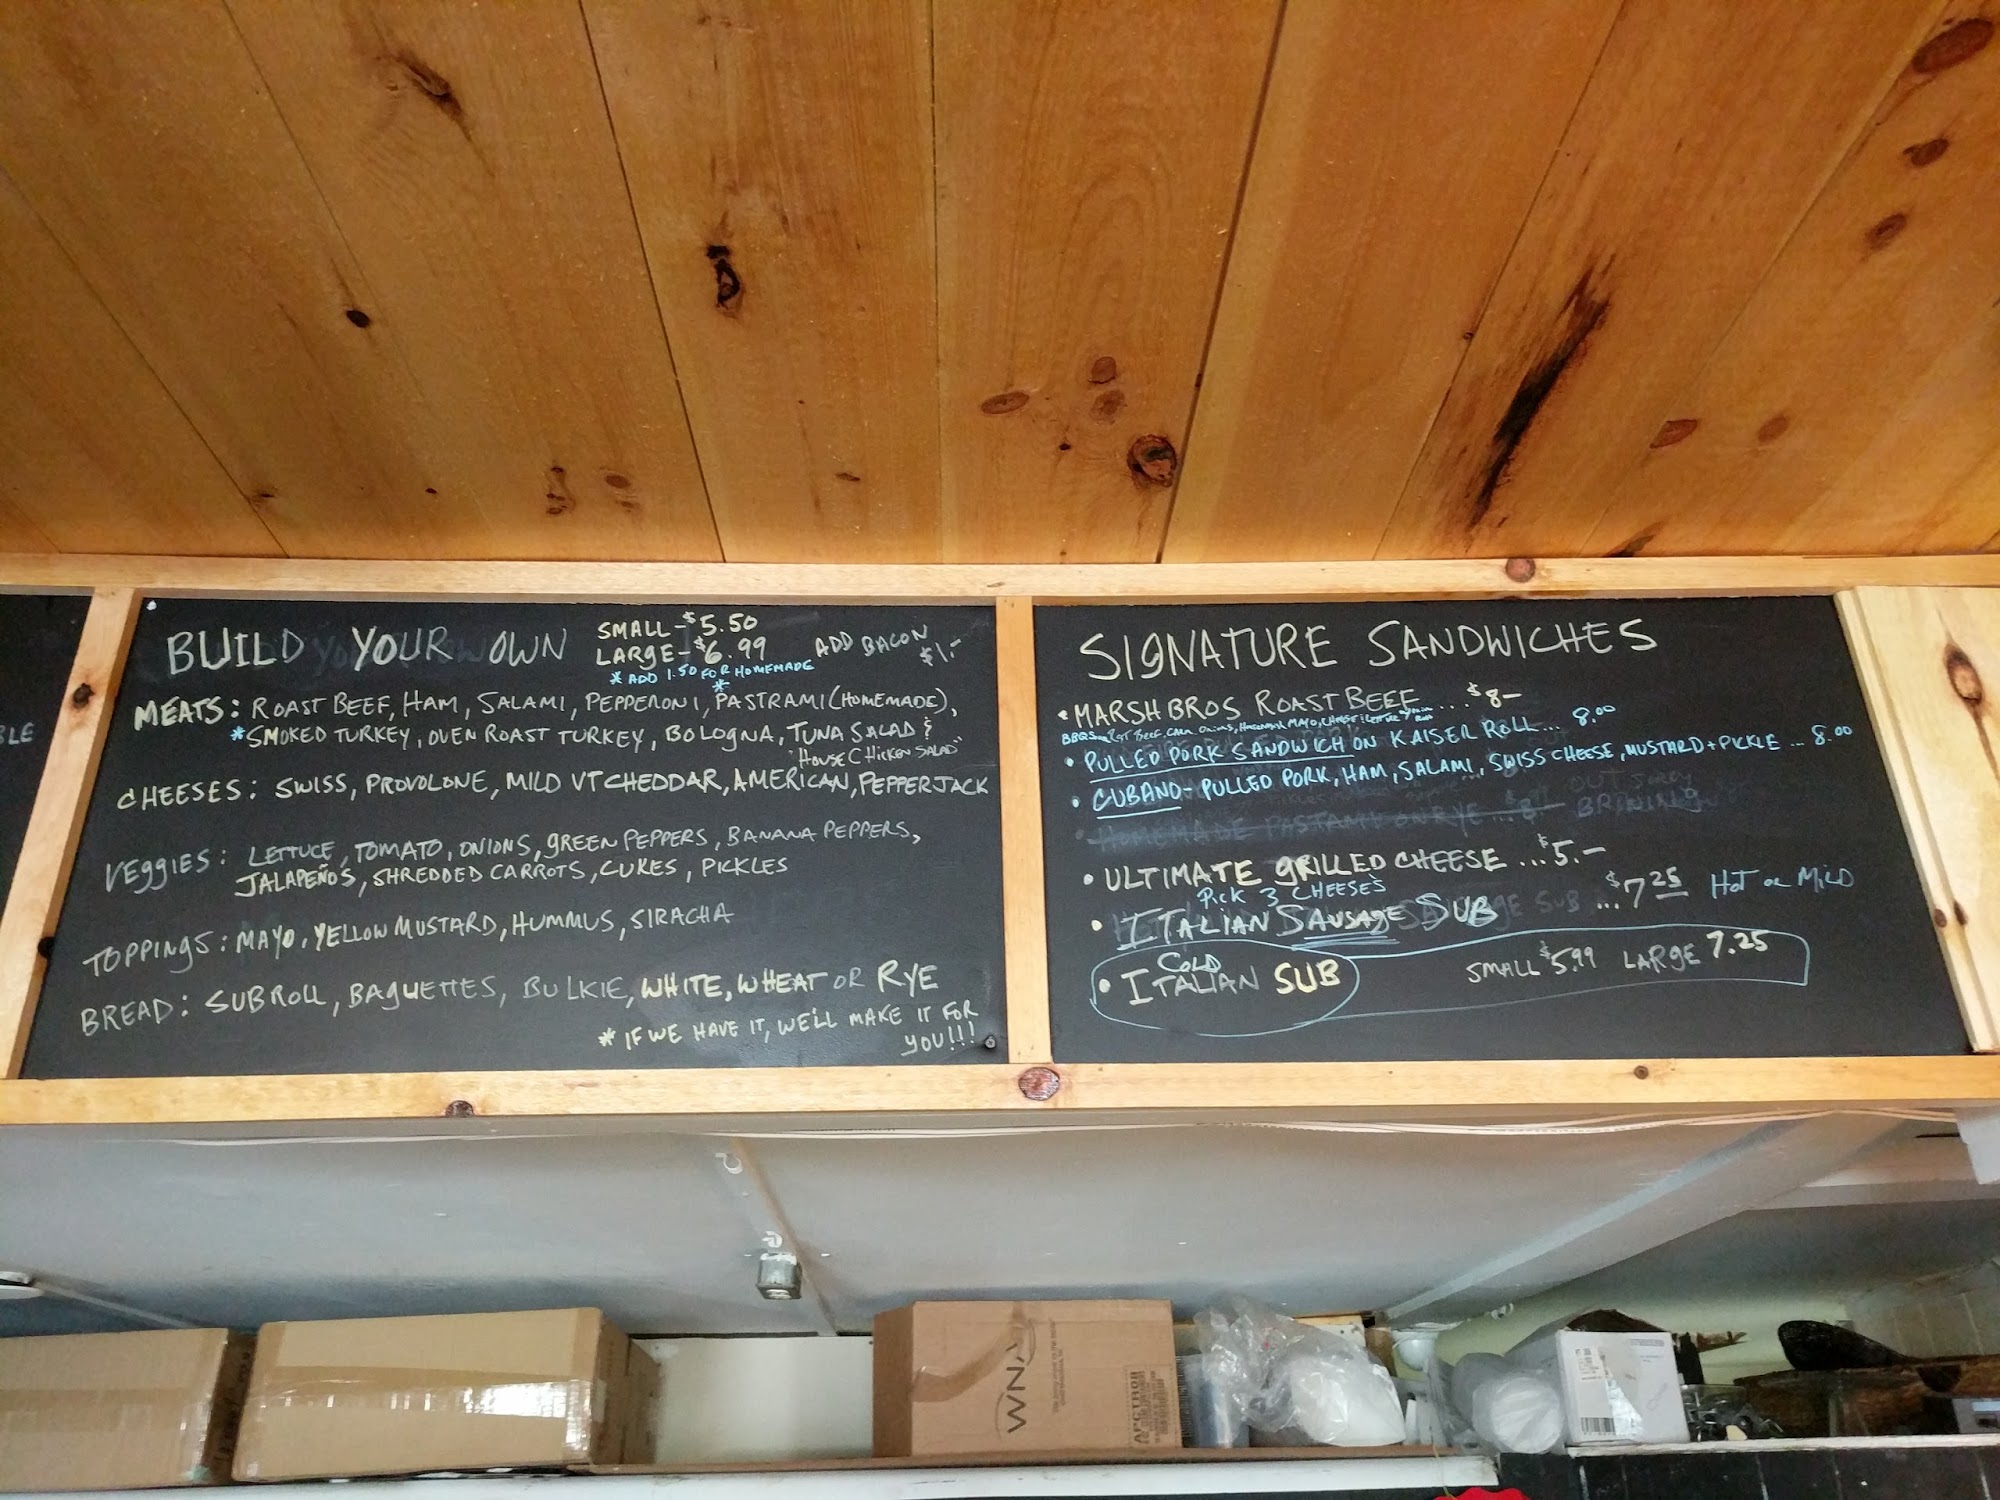 BLE
BUILD YOUR OWN
SMALL - $5.50
LARGE - $6.99
* ADD 1.50 FOR HOMEMADE
ADD BACON
$1.-
MEATS: ROAST BEEF, HAM, SALAMI, PEPPERONI, *PASTRAMI (HOMEMADE),
*SMOKED TURKEY, OVEN ROAST TURKEY, BOLOGNA, TUNA SALAD &
"HOUSE CHICKEN SALAD"
CHEESES: SWISS, PROVOLONE, MILD VT CHEDDAR, AMERICAN, PEPPERJACK
VEGGIES: LETTUCE, TOMATO, ONIONS, GREEN PEPPERS, BANANA PEPPERS,
JALAPEÑOS, SHREDDED CARROTS, CUKES, PICKLES
TOPPINGS: MAYO, YELLOW MUSTARD, HUMMUS, SIRACHA
BREAD: SUB ROLL, BAGUETTES, BULKIE, WHITE, WHEAT OR RYE
* IF WE HAVE IT, WE'LL MAKE IT FOR
YOU!!!
SIGNATURE SANDWICHES
• MARSH BROS ROAST BEEF ... $8-
MAYO, CHEESE
• PULLED PORK SANDWICH ON KAISER ROLL ... 8.00
• CUBANO - PULLED PORK, HAM, SALAMI, SWISS CHEESE, MUSTARD + PICKLE ... 8.00
• HOMEMADE PASTAMI ON RYE ... 8-
• ULTIMATE GRILLED CHEESE ... $5.-
PICK 3 CHEESE'S
• ITALIAN SAUSAGE SUB ... $7 25 HOT OR MILD
COLD
• ITALIAN SUB SMALL $5.99 LARGE 7.25
WNA
APCTR08